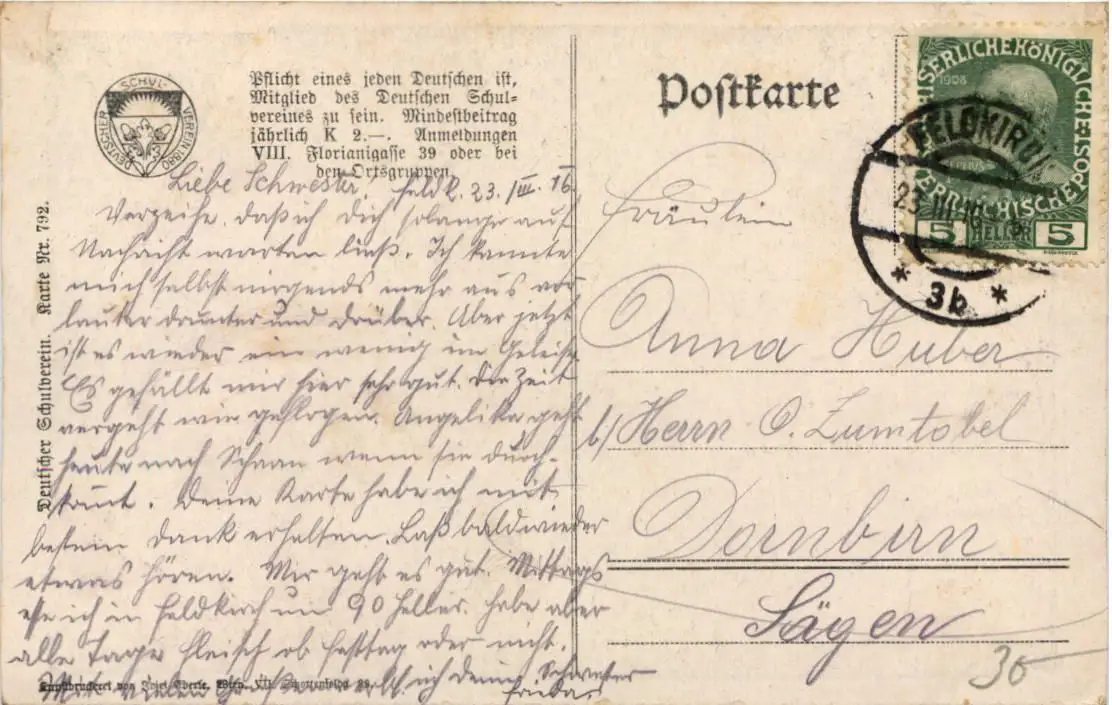 DEUTSCHER SCHUL- VEREIN 1880
Pflicht eines jeden Deutschen ist,
Mitglied des Deutschen Schul-
vereines zu sein. Mindestbeitrag
jährlich K 2.—. Anmeldungen
VIII. Florianigasse 39 oder bei
den Ortsgruppen.
Deutscher Schulverein. Karte Nr. 792.
Liebe Schwester! Feldk. 23./III. 16
Verzeihe, daß ich Dich solange auf
Nachricht warten ließ. Ich kannte
mich selbst nirgends mehr aus vor
lauter drunter und drüber. Aber jetzt
ist es wieder ein wenig im Geleise.
Es gefällt mir hier sehr gut. Die Zeit
vergeht wie geflogen. Angelika geht
heute nach Schaan wenn sie durch-
kommt. Deine Karte habe ich mit
bestem Dank erhalten. Laß bald wieder
etwas hören. Mir geht es gut. Mittags
esse ich in Feldkirch um 90 Heller. habe aber
alle Tage Fleisch ob Festtag oder nicht.
Mit vielen ich Deine Schwester
Frida.
Kunstdruckerei von Josef Eberle, Wien, VII. Schottenfeldg.
Postkarte
KAISERLICHE KÖNIGLICHE ÖSTERREICHISCHE POST
1908
5 HELLER 5
FELDKIRCH
23 III 16
* 3b *
Fräulein
Anna Huber
b/ Herrn O. Zumtobel
Dornbirn
Sägen
30